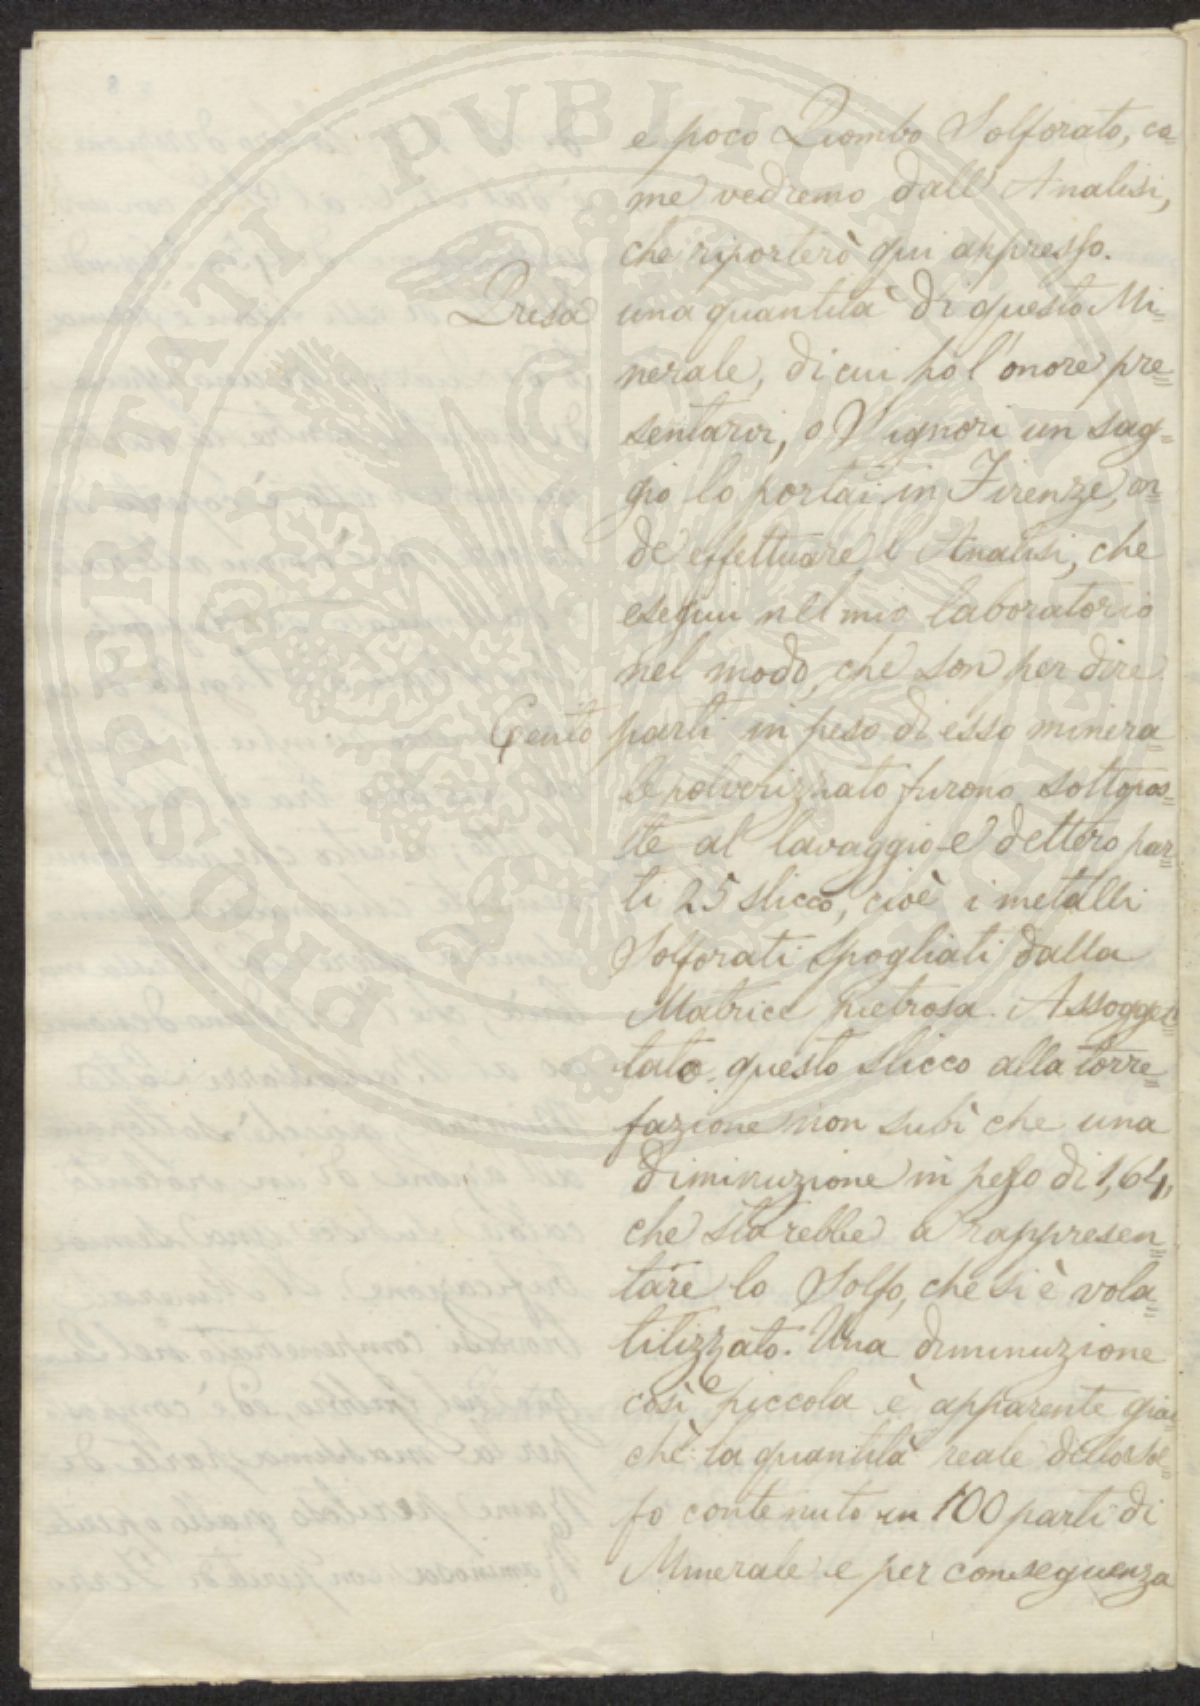 e poco Piombo Solforato, co=
me vedremo dall'Analisi,
che riporterò qui appresso.
Presa una quantità di questo Mi=
nerale, di cui ho l'onore pre=
sentarvi, o Signori un sag=
gio lo portai in Firenze, on=
de effettuare l'Analisi, che
eseguii nel mio laboratorio
nel modo, che son per dire.
Cento parti in peso di esso minera=
le polverizzato furono sottopos=
te al lavaggio e dettero par=
ti 25 slicco, cioè i metalli
Solforati spogliati dalla
Matrice pietrosa. Assogget=
tato questo slicco alla torre=
fazione non subì che una
diminuzione in peso di 1,64,
che starebbe a rappresen=
tare lo Solfo, che si è vola=
tilizzato. Una diminuzione
così piccola è apparente giac
chè la quantità reale dello Sol=
fo contenuto in 100 parti di
Minerale e per conseguenza
PROSPERITATI PVBLICAE AVGENDAE